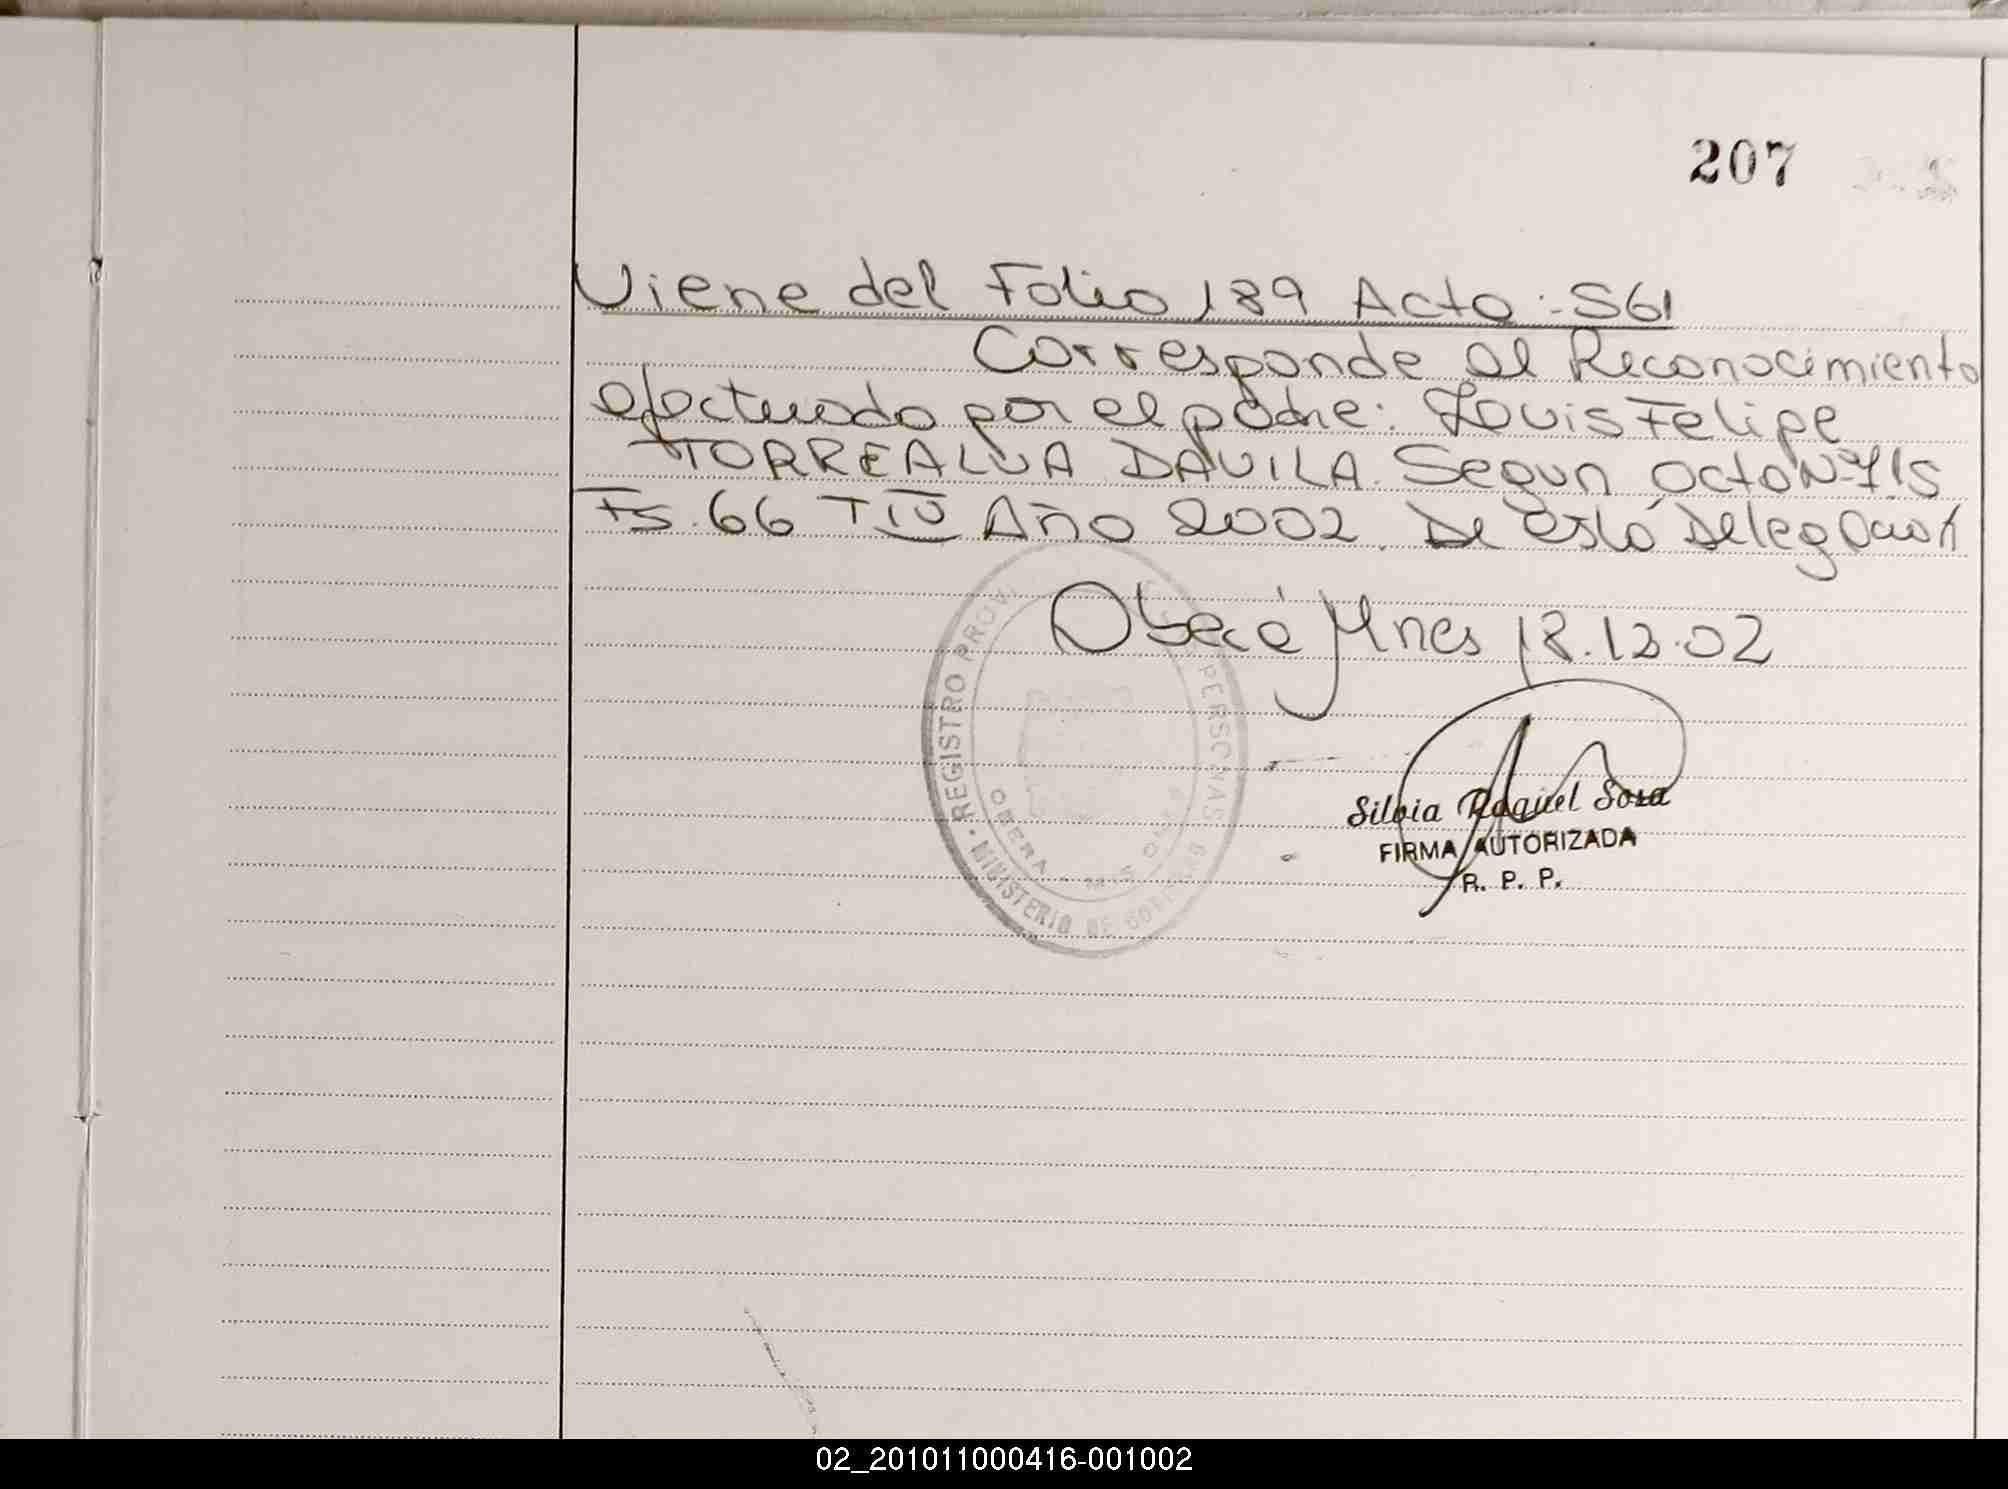 207
Viene del Folio 189 Acta: 561
Corresponde al Reconocimiento
efectuado por el padre: Louis Felipe
TORREALVA DAVILA. Segun acta Nº 715
Fs. 66 T IV Año 2002. De esta Delegación
Oberá Mnes 18.12.02
REGISTRO PROVI PERSONAS
MINISTERIO DE GOBIERNO
OBERA - MISIONES
Silvia Raquel Sosa
FIRMA AUTORIZADA
R. P. P.
02_201011000416-001002